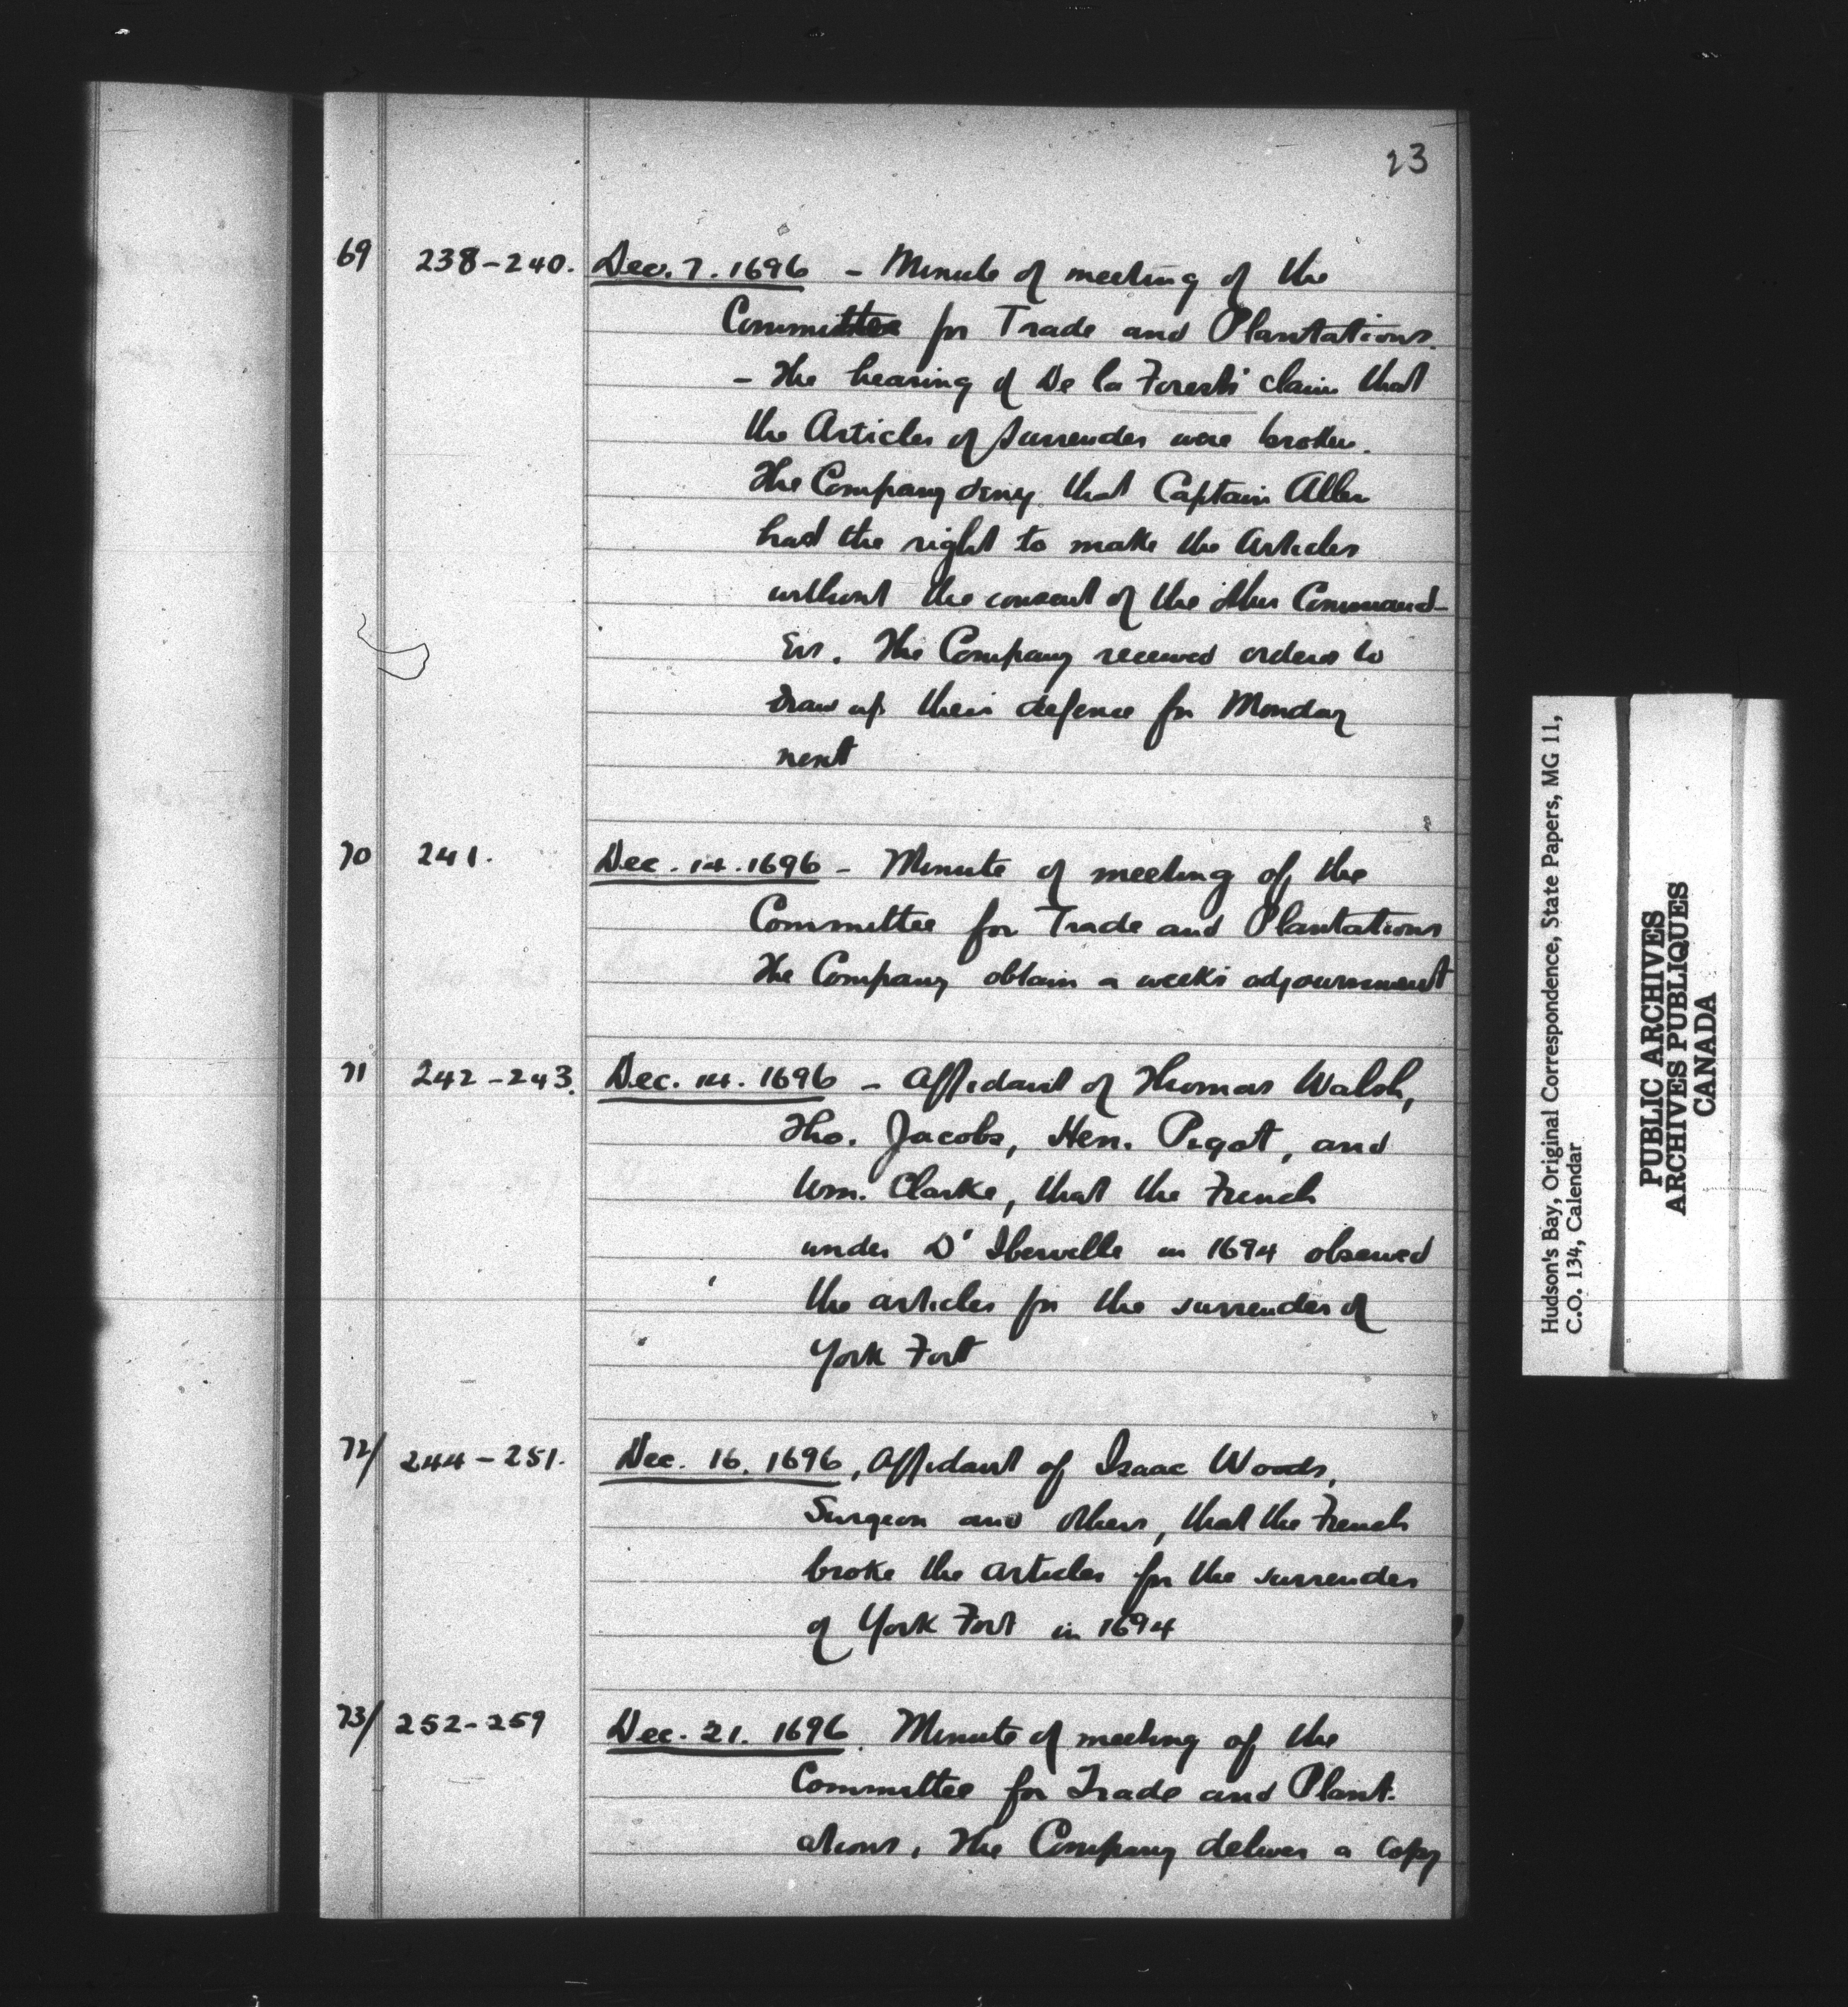 23
69 238-240. Dec. 7. 1696 - Minute of meeting of the
Committee for Trade and Plantations.
- The hearing of De la Forest's claim that
the Articles of Surrender were broken.
The Company deny that Captain Allen
had the right to make the Articles
without the consent of the other Command-
ers. The Company received orders to
draw up their defence for Monday
next
70 241. Dec. 14. 1696 - Minute of meeting of the
Committee for Trade and Plantations
The Company obtain a week's adjournment
71 242-243. Dec. 14. 1696 - Affidavit of Thomas Walsh,
Tho. Jacobs, Hen. Pigot, and
Wm. Clarke, that the French
under D'Iberville in 1694 observed
the articles for the surrender of
York Fort
72/ 244-251. Dec. 16. 1696, Affidavit of Isaac Woods,
Surgeon and others, that the French
broke the articles for the surrender
of York Fort in 1694
73/ 252-259 Dec. 21. 1696. Minute of meeting of the
Committee for Trade and Plant-
ations. The Company deliver a copy
Hudson's Bay, Original Correspondence, State Papers, MG 11,
C.O. 134, Calendar
PUBLIC ARCHIVES
ARCHIVES PUBLIQUES
CANADA